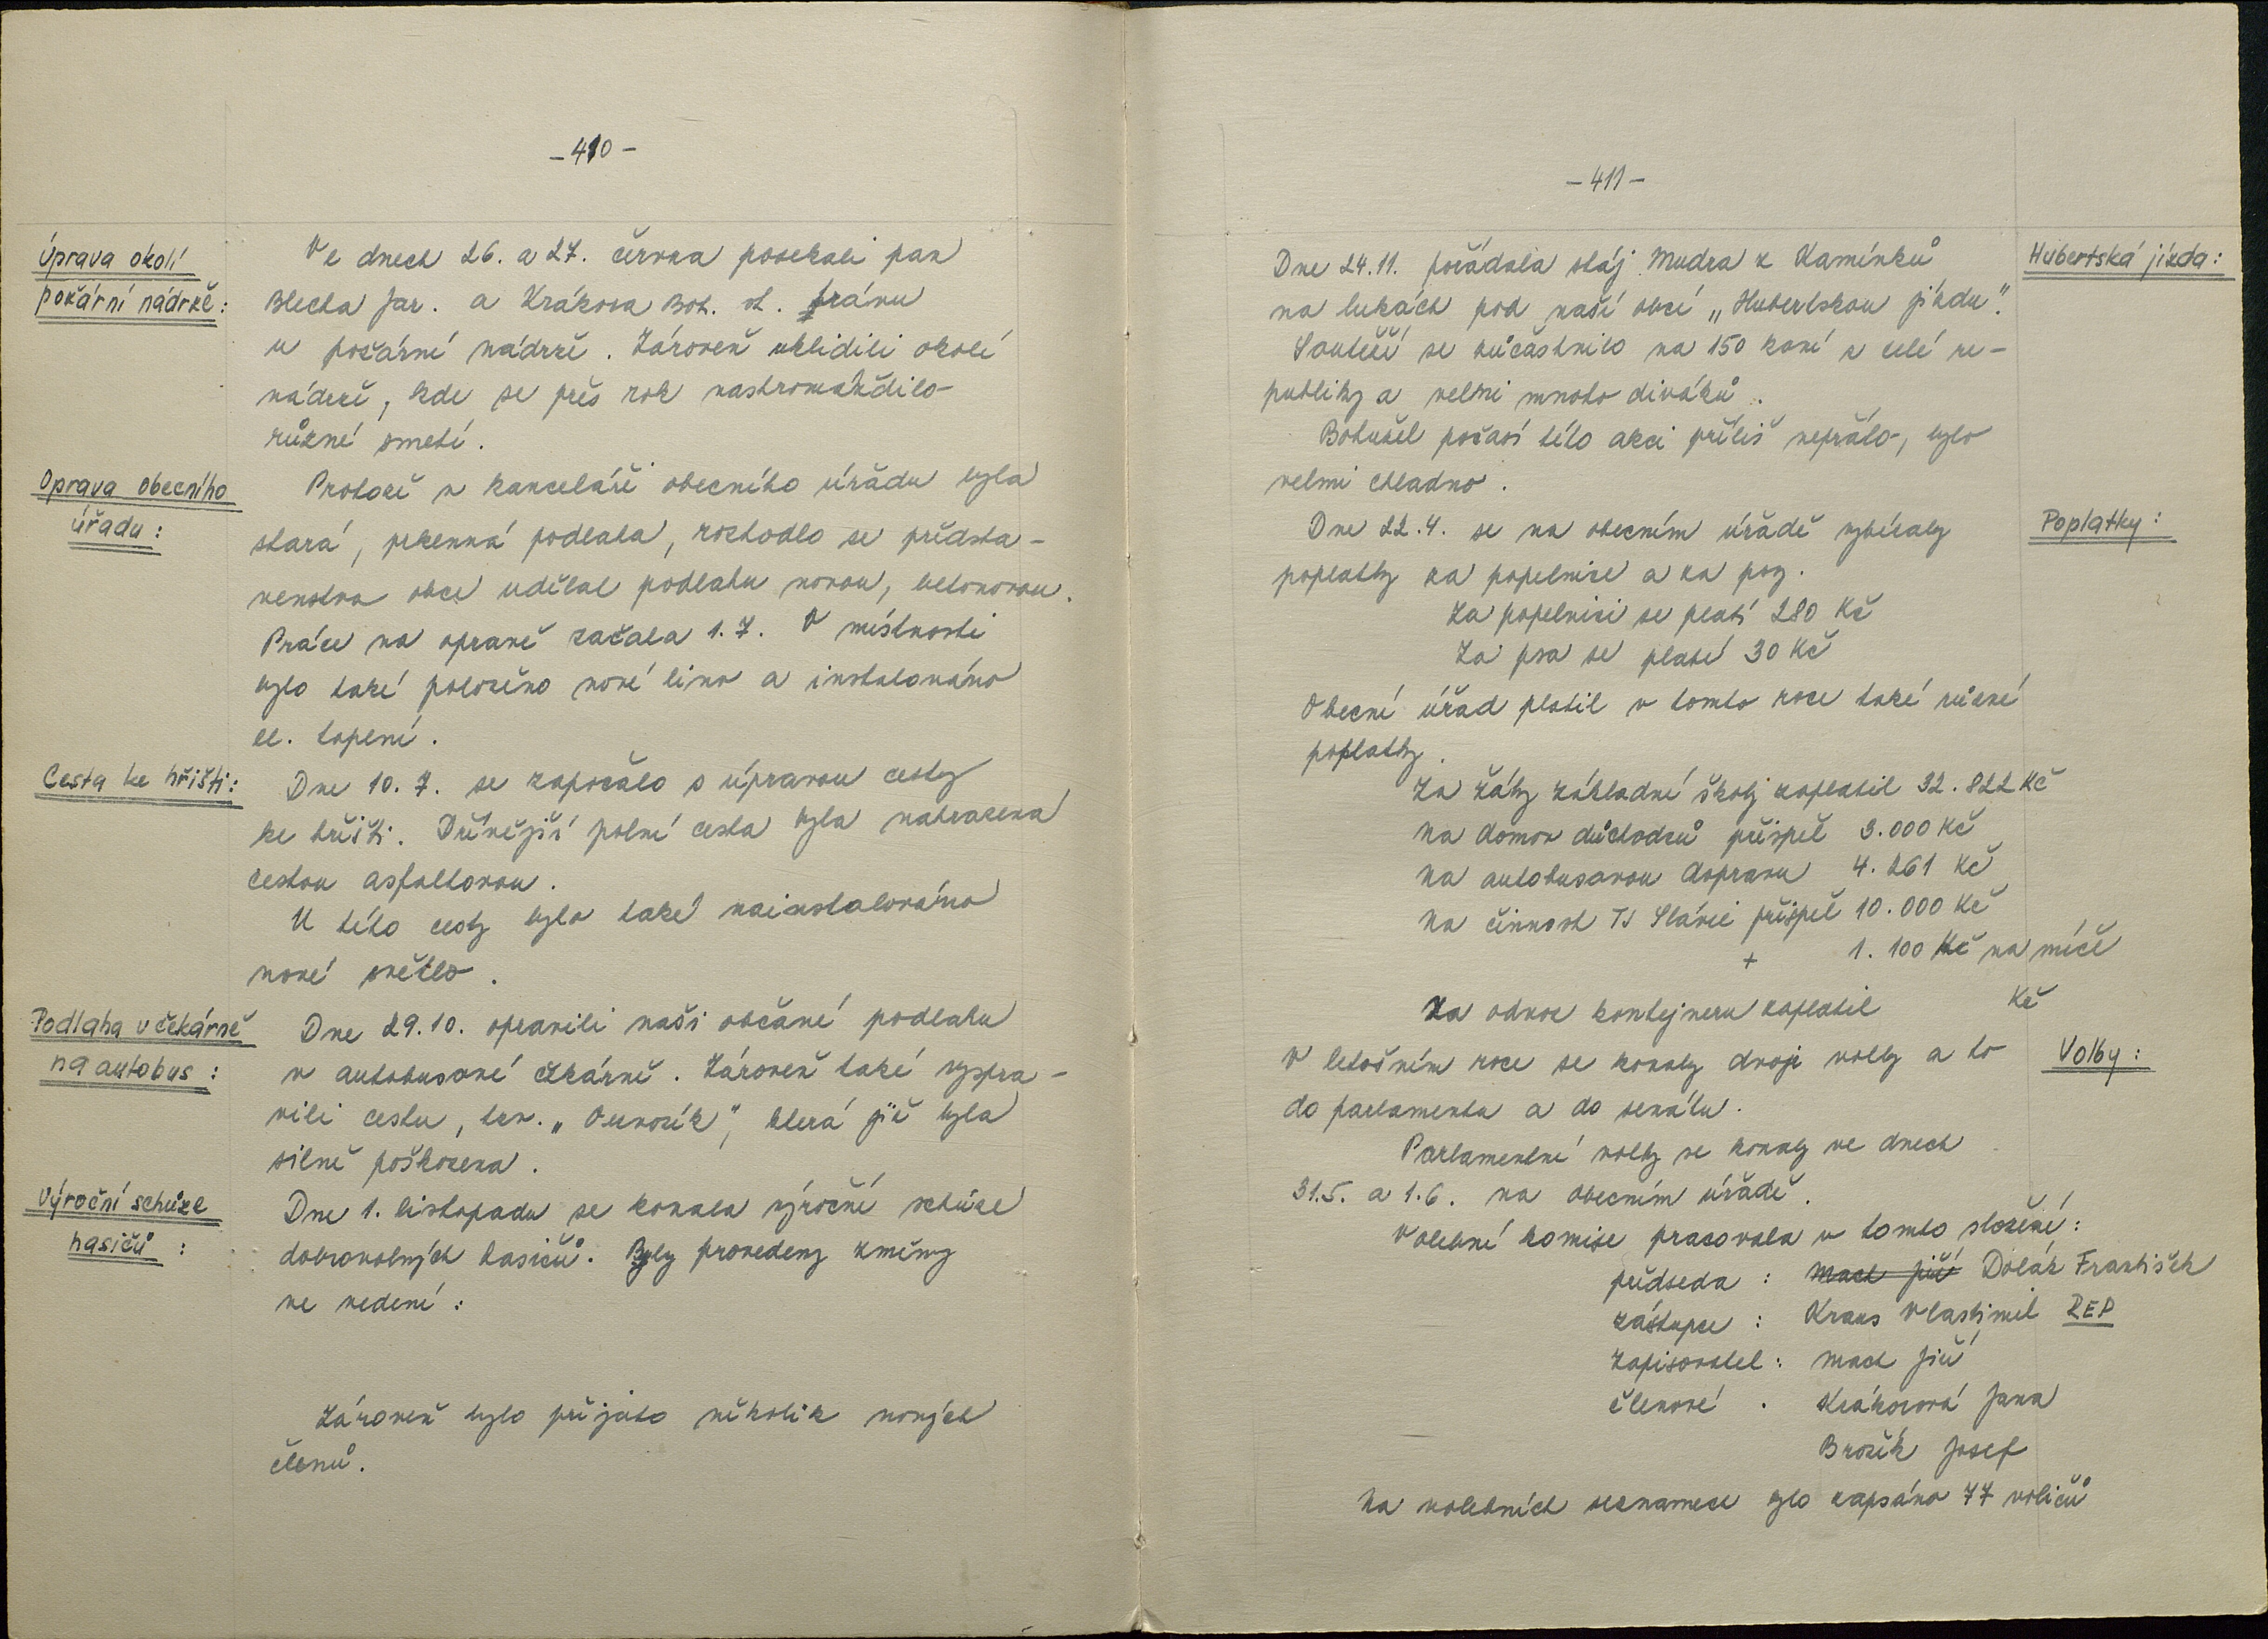 -410-
Úprava okolí
požární nádrže:
Ve dnech 26. a 27. června posekali pan
Blecha Jar. a Krákora Boh. st. trávu
u požární nádrže. Zároveň uklidili okolí
nádrže, kde se přes rok nashromáždilo
různé smetí.
Oprava obecního
úřadu:
Protože v kanceláři obecního úřadu byla
stará, prkenná podlaha, rozhodlo se předsta-
venstvo obce udělat podlahu novou, betonovou.
Práce na opravě začala 1. 7. V místnosti
bylo také položeno nové lino a instalováno
el. topení.
Cesta ke hřišti:
Dne 10. 7. se započalo s úpravou cesty
ke hřišti. Dřívější polní cesta byla nahrazena
cestou asfaltovou.
U této cesty bylo také nainstalováno
nové světlo.
Podlaha v čekárně
na autobus:
Dne 29. 10. opravili naši občané podlahu
v autobusové čekárně. Zároveň také vyspra-
vili cestu, tzv. „ ", která již byla
silně poškozena.
Výroční schůze
hasičů:
Dne 1. listopadu se konala výroční schůze
dobrovolných hasičů. Byly provedeny změny
ve vedení:
Zároveň bylo přijato několik nových
členů.
-411-
Hubertská jízda:
Dne 24.11. pořádala stáj Mudra z Kamínků
na lukách pod naší obcí „Hubertskou jízdu".
Soutěží se zúčastnilo na 150 koní z celé re-
publiky a velmi mnoho diváků.
Bohužel počasí této akci příliš nepřálo, bylo
velmi chladno.
Poplatky:
Dne 22.4. se na obecním úřadě vybíraly
poplatky za popelnice a za psy.
Za popelnici se platí 280 Kč
Za psa se platí 30 Kč
Obecní úřad platil v tomto roce také různé
poplatky.
Za žáky základní školy zaplatil 32. 822 Kč
Na domov důchodců přispěl 3.000 Kč
Na autobusovou dopravu 4. 261 Kč
Na činnost TJ Slávií přispěl 10.000 Kč
+ 1. 100 Kč na míče
Za odvoz kontejneru zaplatil Kč
Volby:
V letošním roce se konaly dvoje volby a to
do parlamentu a do senátu.
Parlamentní volby se konaly ve dnech
31.5. a 1.6. na obecním úřadě.
Volební komise pracovala v tomto složení:
předseda : Mach Jiří Dolák František
zástupce : Kraus Vlastimil REP
Zapisovatel : Mach Jiří
členové . Krákorová Jana
Brožík Josef
Na volebních seznamech bylo zapsáno 77 voličů